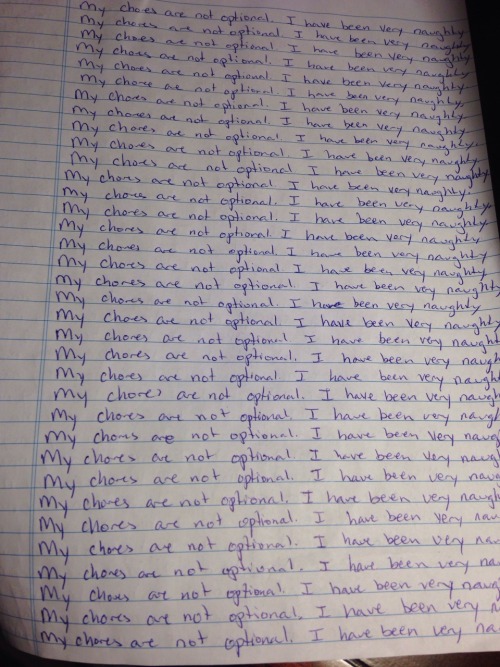 My chores are not optional. I have been very naughty
My chores are not optional. I have been very naughty
My chores are not optional. I have been very naughty
My chores are not optional. I have been very naughty
My chores are not optional. I have been very naughty
My chores are not optional. I have been very naughty
My chores are not optional. I have been very naughty
My chores are not optional. I have been very naughty.
My chores are not optional. I have been very naughty.
My chores are not optional. I have been very naughty.
My chores are not optional. I have been very naughty
My chores are not optional I have been very naughty.
My chores are not optional. I have been very naughty
My chores are not optional. I have been very naughty
My chores are not optional. I have been very naughty
My chores are not optional. I have been very naughty
My chores are not optional. I have been very naughty
My chores are not optional. I have been very naughty
My chores are not optional. I have been very naughty
My chores are not optional I have been very naughty
My chores are not optional. I have been very naught
My chores are not optional. I have been very naught
My chores are not optional I have been very naught
My chores are not optional. I have been very naugh
My chores are not optional I have been very naugh
My chores are not optional. I have been very naugh
My chores are not optional. I have been very naug
My chores are not optional. I have been very naug
My chores are not optional. I have been very naug
My chores are not optional. I have been very nau
My chores are not optional. I have been very na
My chores are not optional. I have been very na
My chores are not optional. I have been very nau
My chores are not optional. I have been very n
My chores are not optional. I have been very na